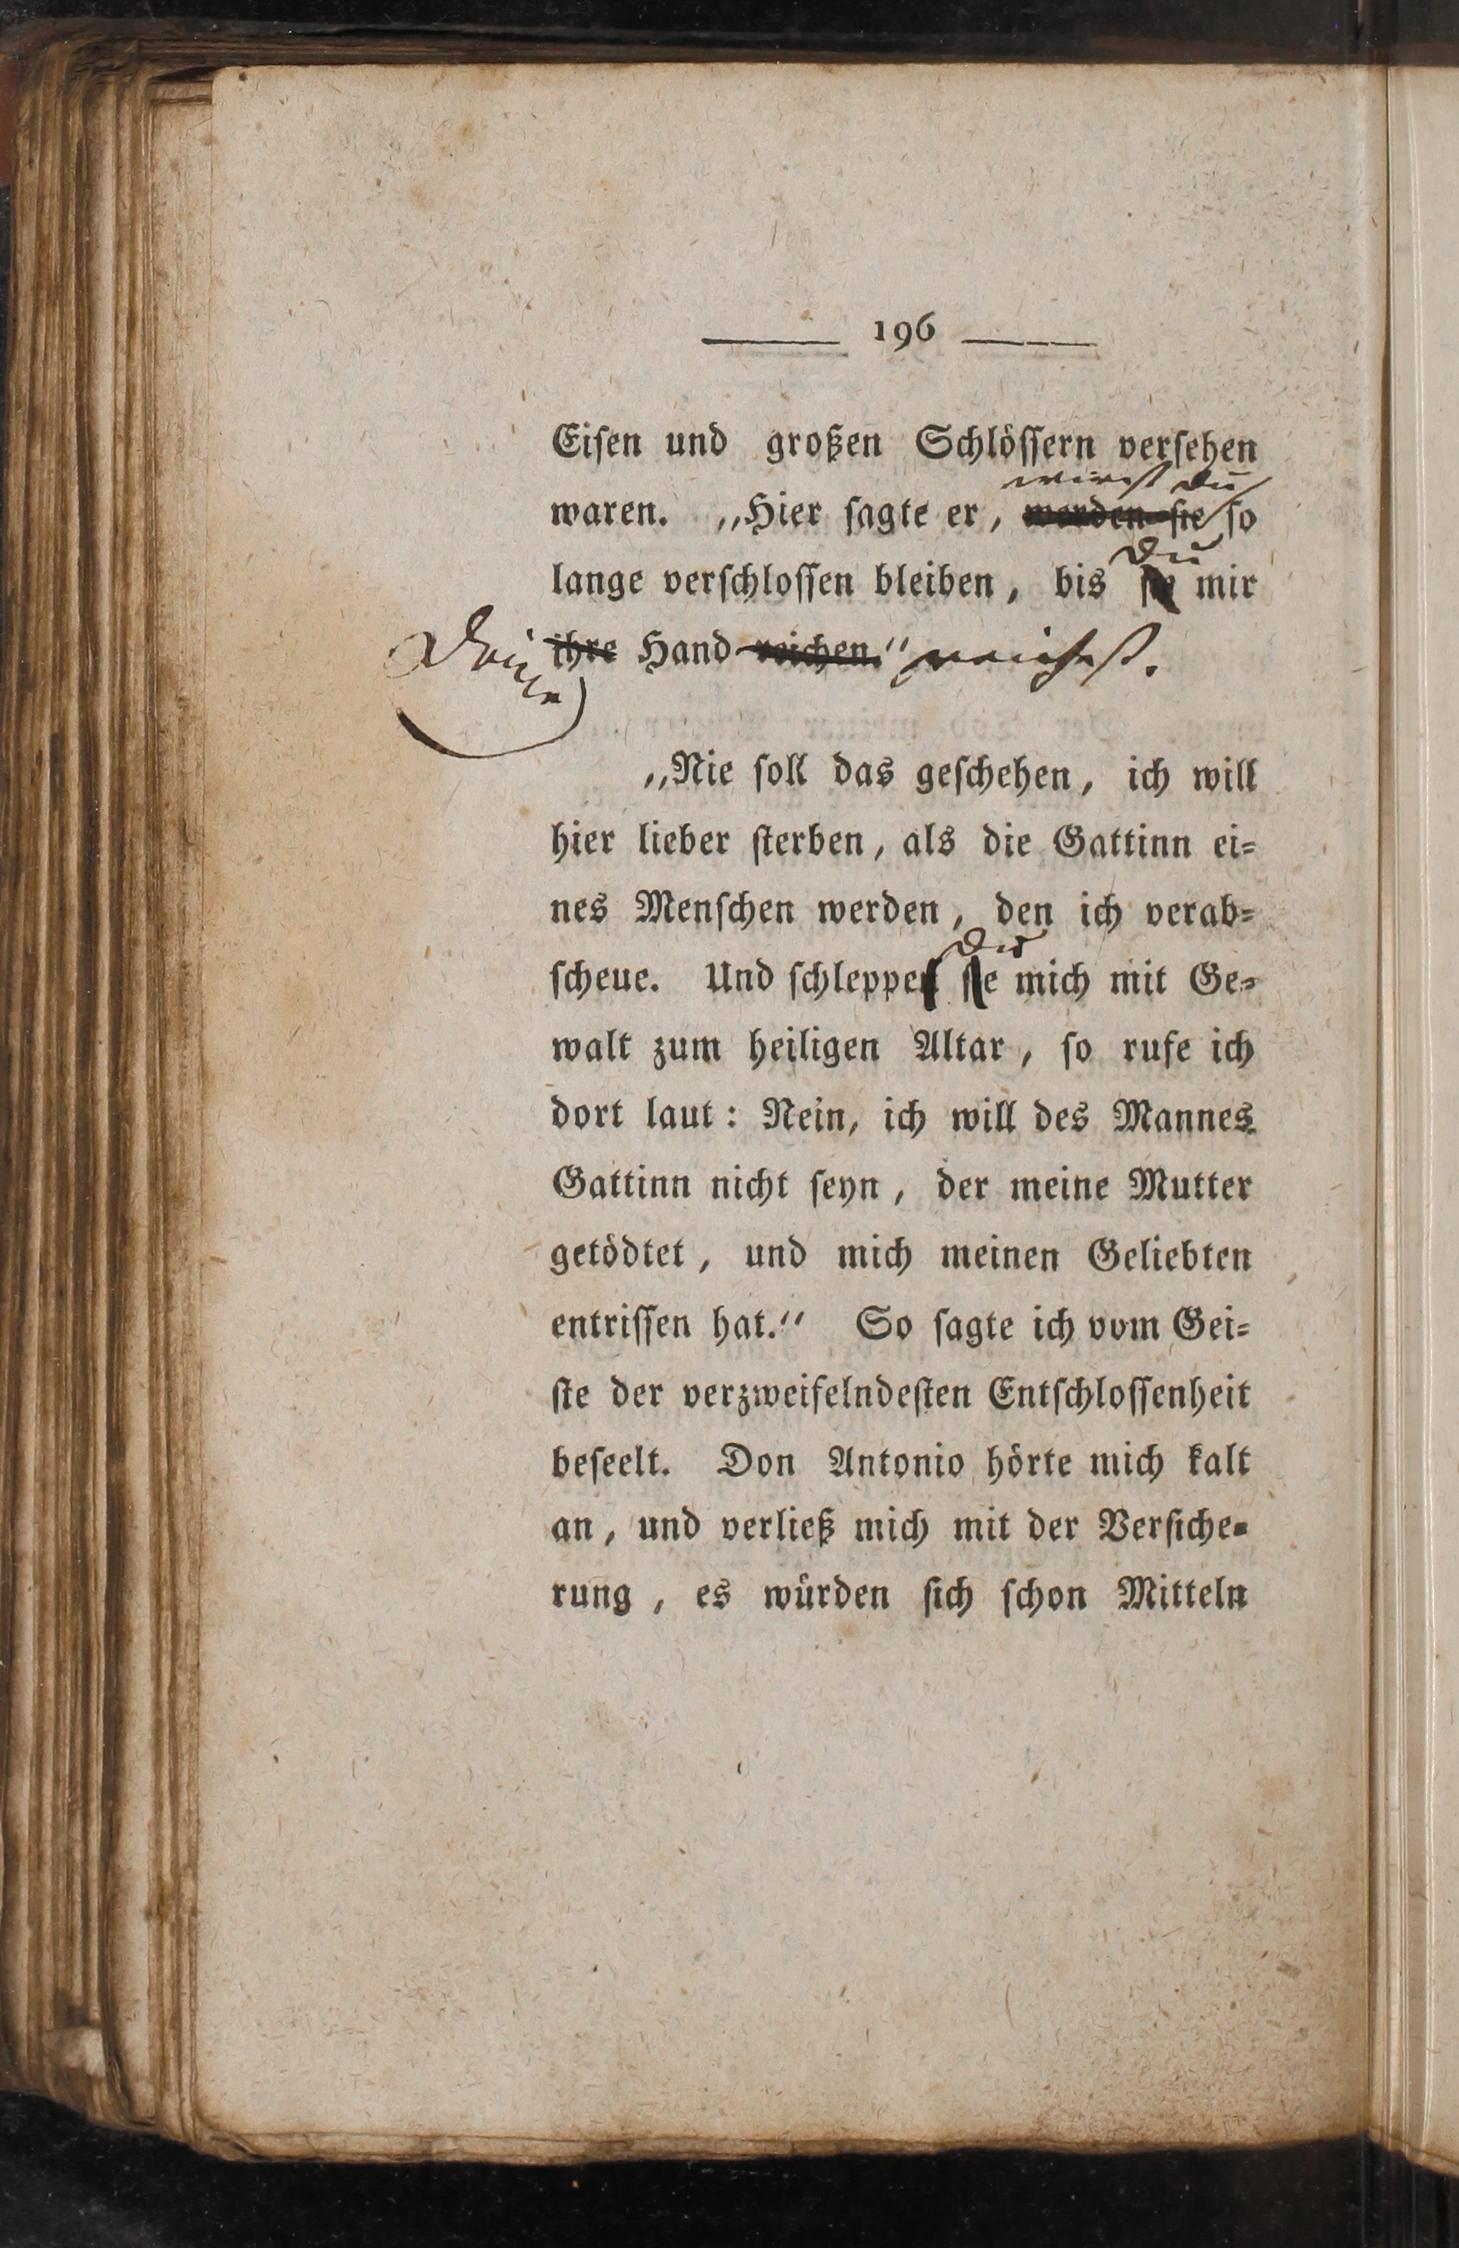 196
Eiſen und großen Schlöſſern verſehen
wirst Du
waren. „Hier ſagte er, werden ſie ſo
Du
lange verſchloſſen bleiben, bis ſie mir
Deine ihre Hand reichen.“ reichest.
„Nie ſoll das geſchehen, ich will
hier lieber ſterben, als die Gattinn ei⸗
nes Menſchen werden, den ich verab⸗
Du
ſcheue. Und ſchleppen ſie mich mit Ge⸗
walt zum heiligen Altar, ſo rufe ich
dort laut: Nein, ich will des Mannes
Gattinn nicht ſeyn, der meine Mutter
getödtet, und mich meinen Geliebten
entriſſen hat.“ So ſagte ich vom Gei⸗
ſte der verzweifelndeſten Entſchloſſenheit
beſeelt. Don Antonio hörte mich kalt
an, und verließ mich mit der Verſiche⸗
rung, es würden ſich ſchon Mitteln